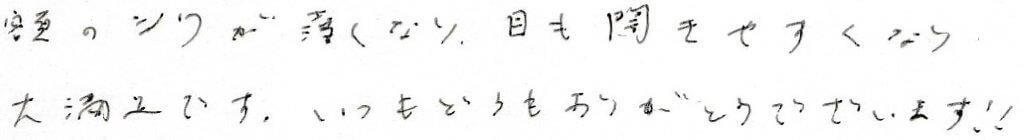 額のシワが薄くなり、目も開きやすくなり
大満足です。いつもどうもありがとうございます!!